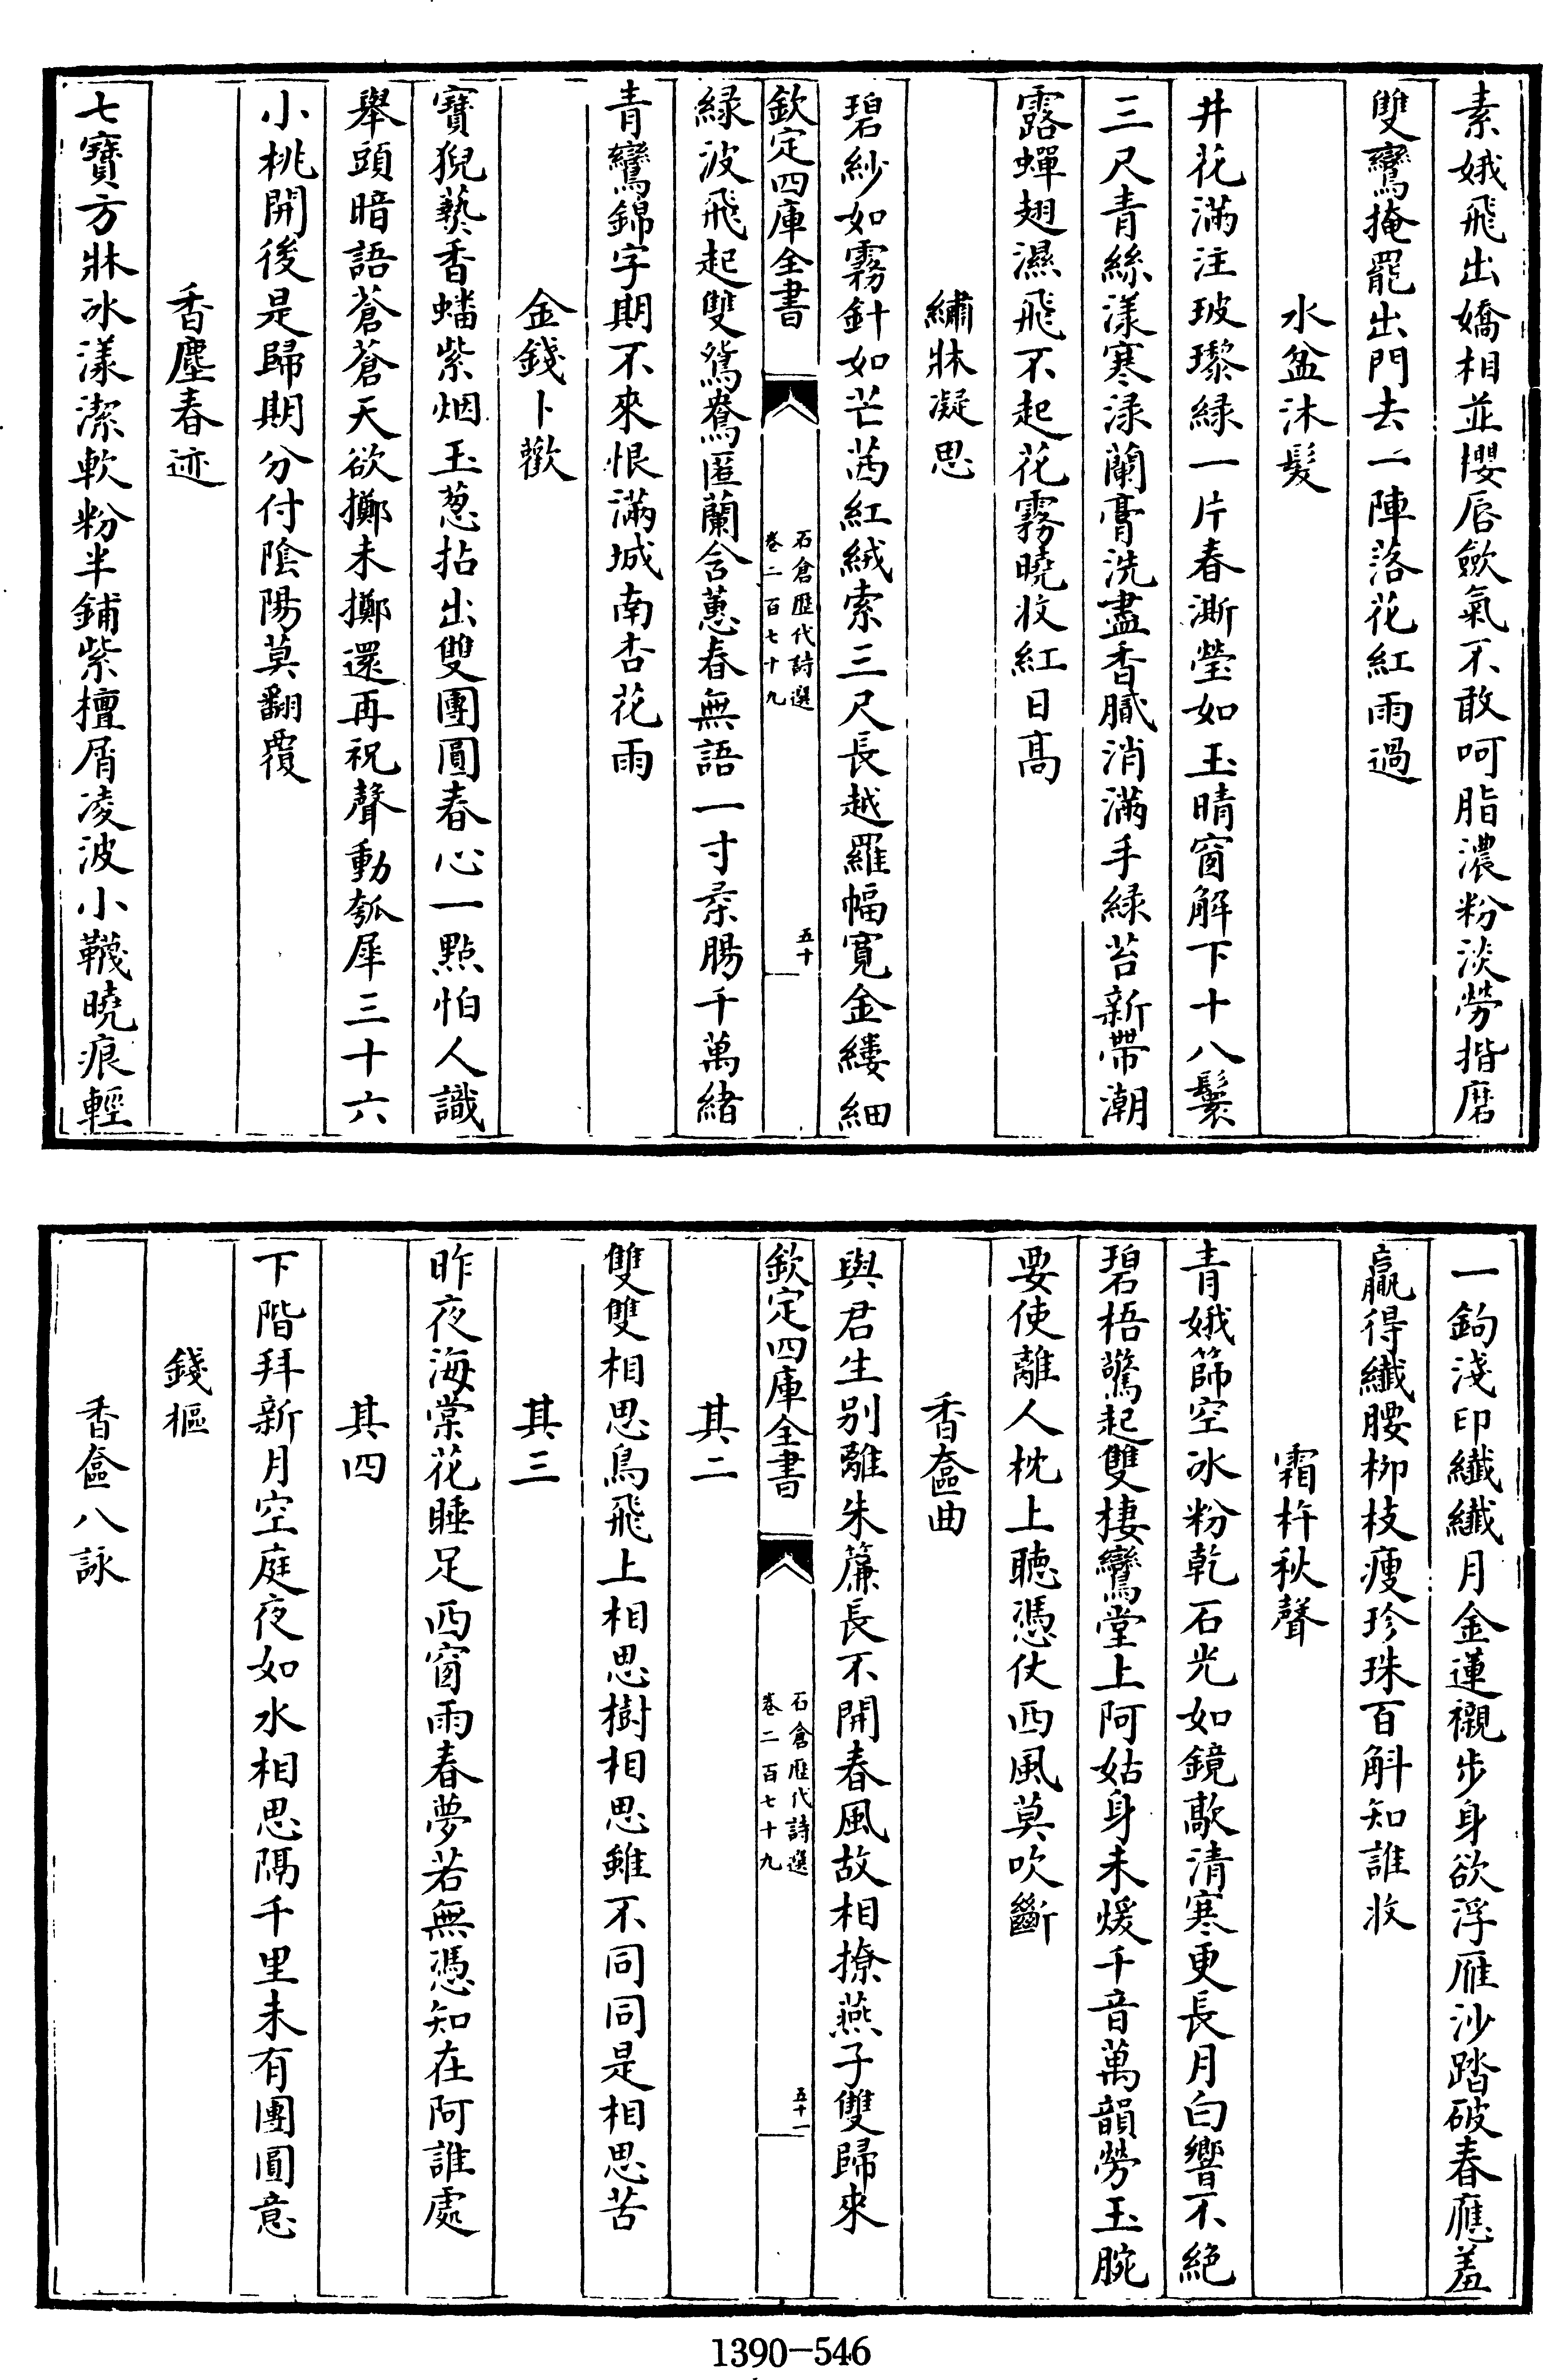 素娥飛出嬌相並櫻唇歛氣不敢呵脂濃粉淡勞揩磨
雙鸞掩罷出門去一陣落花紅雨過
水盆沐髮
井花滿注玻瓈緑一片春澌瑩如玉晴窗解下十八鬟
三尺青絲漾寒渌蘭膏洗盡香膩消滿手緑苔新帶潮
露蟬翅濕飛不起花霧曉收紅日髙
繡牀凝思
碧紗如霧針如芒茜紅絨索三尺長越羅幅寛金縷細
欽定四庫全書
石倉歴代詩選
卷二百七十九
五十
緑波飛起雙鴛鴦匿蘭含蕙春無語一寸柔腸千萬緒
青鸞錦字期不來恨滿城南杏花雨
金錢卜歡
寶猊爇香蟠紫烟玉葱拈出雙團圓春心一點怕人識
舉頭暗語蒼蒼天欲擲未擲還再祝聲動瓠犀三十六
小桃開後是歸期分付陰陽莫翻覆
香塵春迹
七寶方牀冰漾潔軟粉半鋪紫檀屑凌波小韈曉痕輕
一鈎淺印纖纖月金蓮襯步身欲浮雁沙踏破春應羞
贏得纖腰柳枝瘦珍珠百斛知誰收
霜杵秋聲
青娥篩空冰粉乾石光如鏡敲清寒更長月白響不絶
碧梧驚起雙棲鸞堂上阿姑身未煖千音萬韻勞玉腕
要使離人枕上聴憑仗西風莫吹斷
香奩曲
與君生别離朱簾長不開春風故相撩燕子雙歸來
欽定四庫全書
石倉歴代詩選
卷二百七十九
五十一
其二
雙雙相思鳥飛上相思樹相思雖不同同是相思苦
其三
昨夜海棠花睡足西窗雨春夢若無憑知在阿誰處
其四
下階拜新月空庭夜如水相思隔千里未有團圓意
錢樞
香奩八詠
1390-546